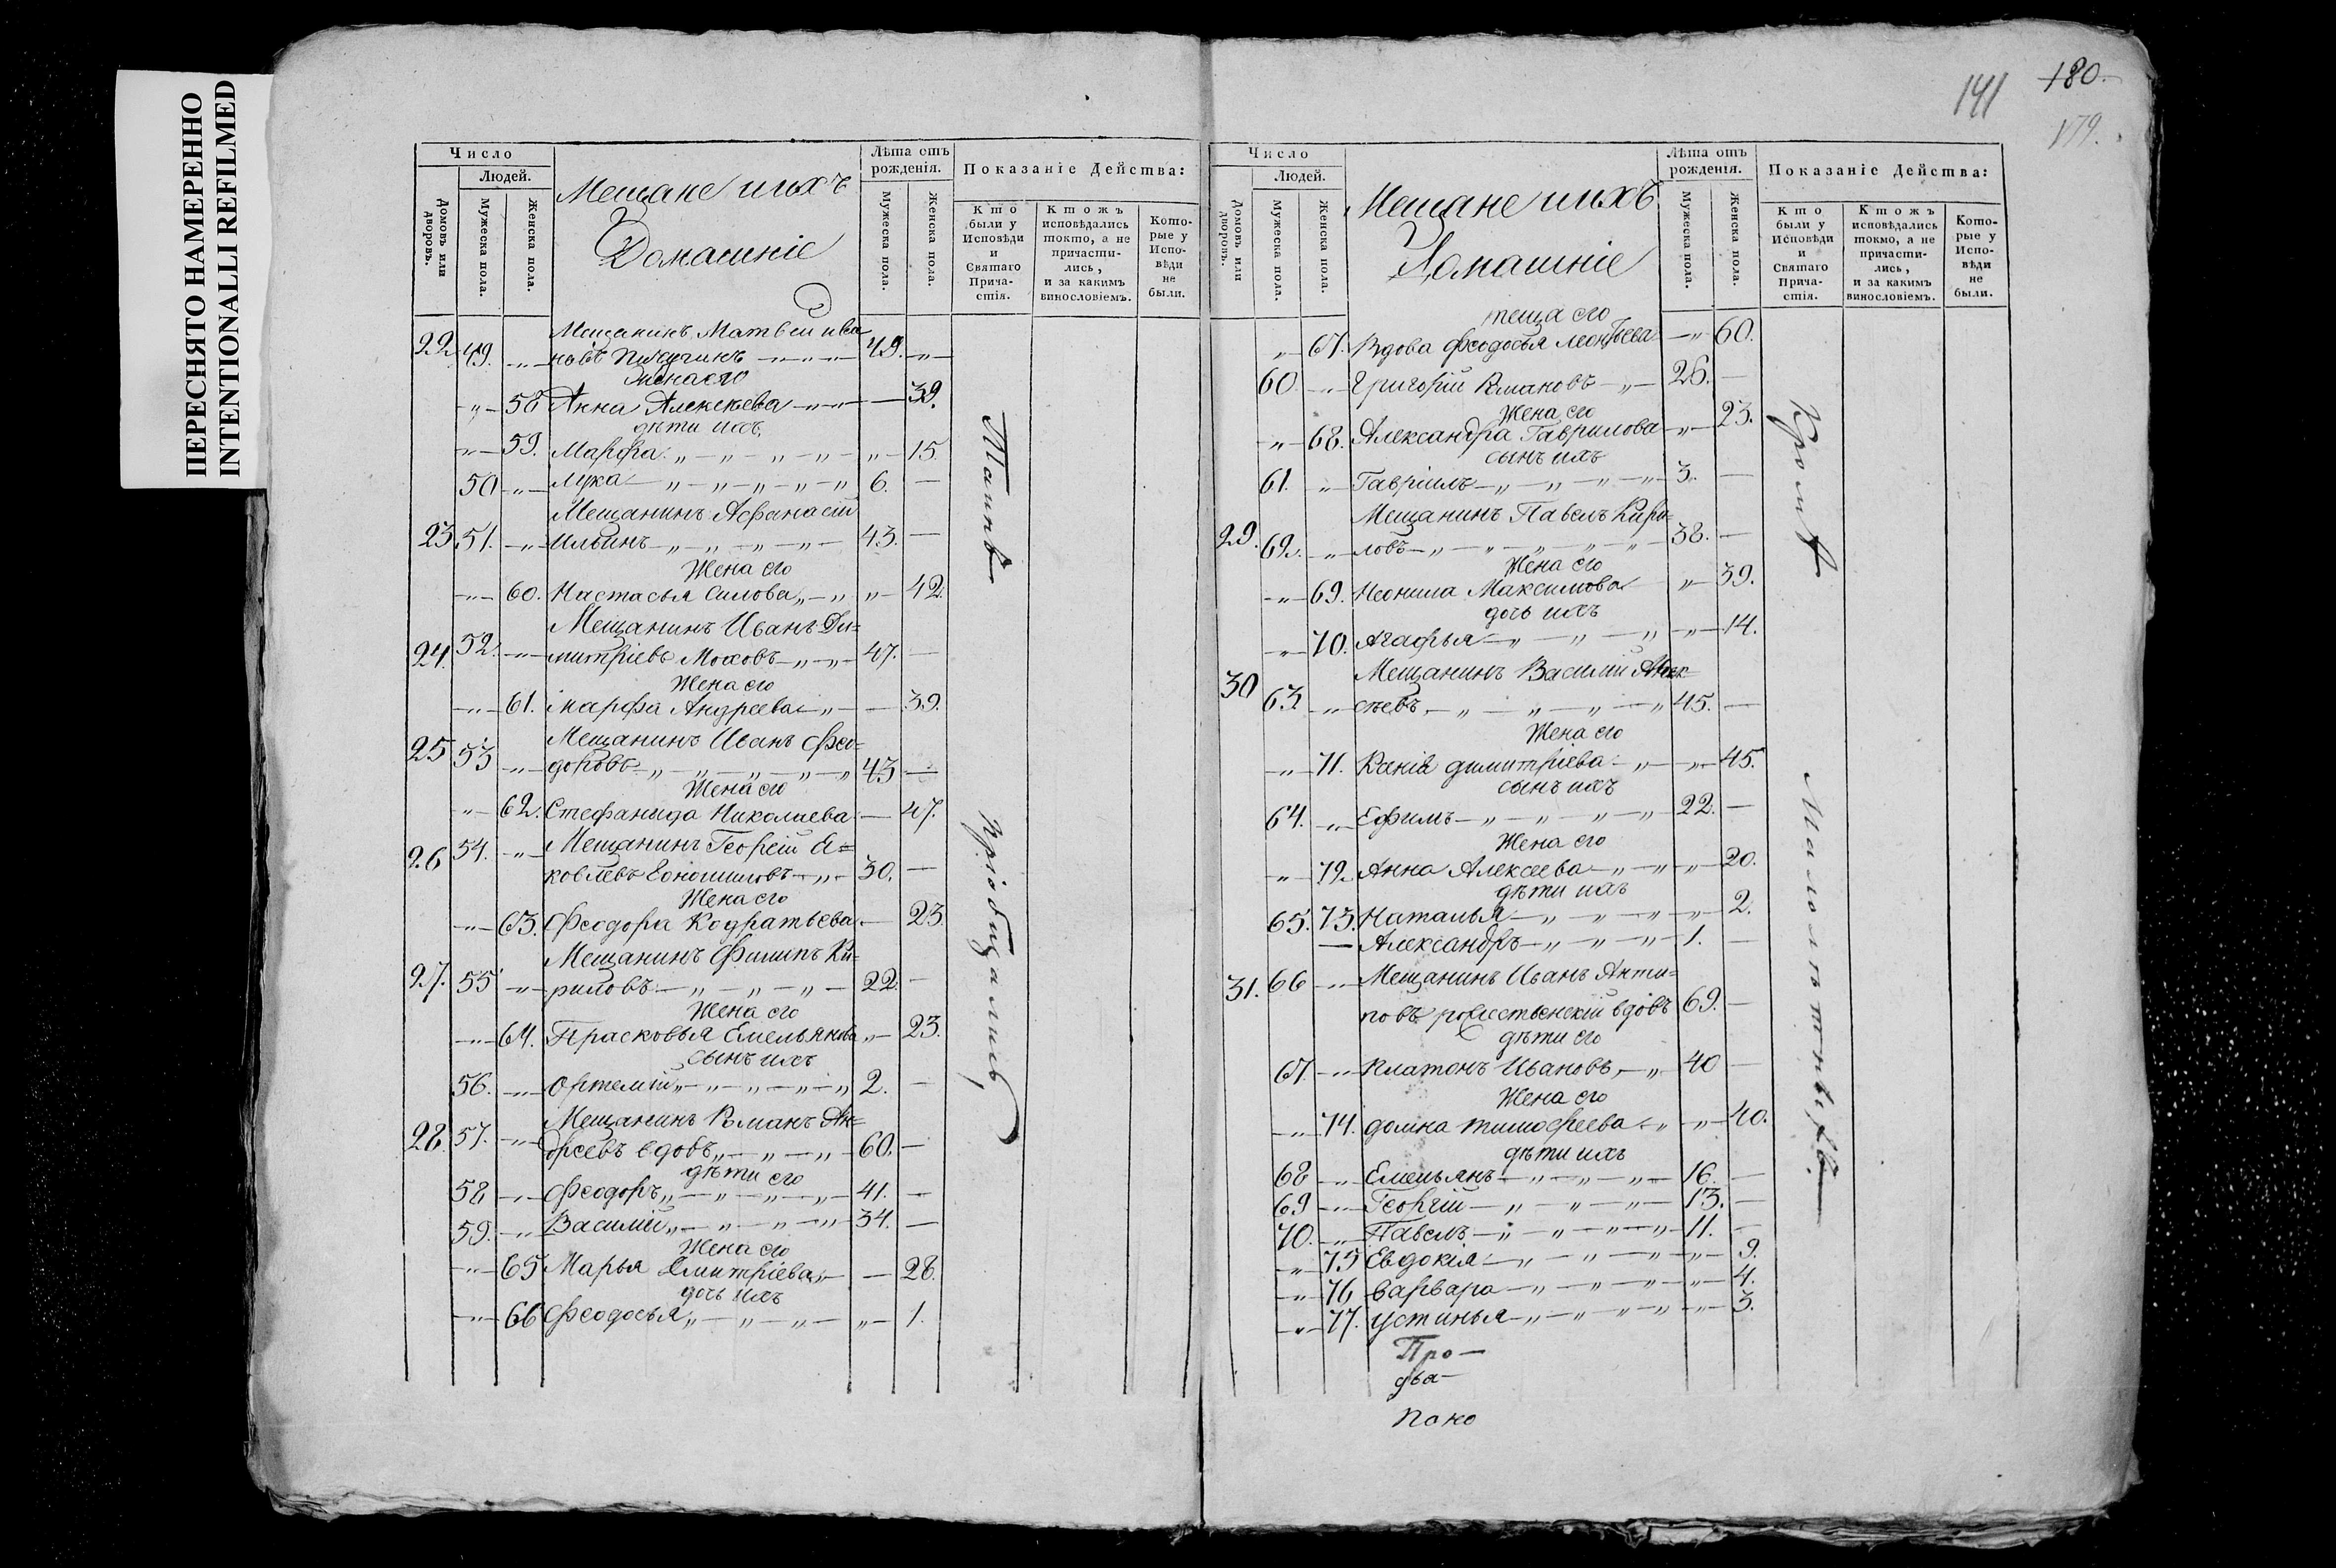 ПЕРЕСНЯТО НАМЕРЕННО
INTENTIONALLI REFILMED
141
180.
179.
Число
Людей.
Домовъ или дворовъ.
Мужеска пола.
Женска пола.
Мещане ишхъ
Домашніе
Лѣта отъ рожденія.
Мужеска пола.
Женска пола.
Показаніе Действа:
Кто были у Исповѣди и Святаго Прича-стія.
Ктожъ исповѣдались токмо, а не причасти-лись, и за какимъ винословіемъ.
Кото-рые у Испо-вѣди не были.
22. 49. „ Мещанинъ Матвей ива
новъ „ 49. „
жена его
„ 58 Анна Алексеева „ — 39.
дѣти ихъ
„ 59. Марфа „ „ „ „ 15.
50 „ Лука „ „ „ „ 6. —
Мещанинъ Афанасій
23. 51. „ Ильинъ „ „ „ „ 43. —
Жена его
„ 60. Настасья Силова „ „ „ 42.
Мещанинъ Иванъ Ди=
24. 52. „ митріевъ Моховъ „ „ 47. —
Жена его
„ 61. Марфа Андреева „ — 39.
Мещанинъ Иванъ Фео=
25 53 „ доровъ „ „ „ „ „ 43 —
Жена его
„ 62. Стефанида Николаева — 47.
26 54. „ Мещанинъ Георгій Я=
ковлевъ „ 30. —
Жена его
„ 63. Феодора Кодратьева — 23.
Мещанинъ Филипъ Ки=
27. 55 „ риловъ „ „ „ 22. —
Жена его
„ 64. Прасковья Емельянова „ 23.
сынъ ихъ
56. „ Ортемій „ „ „ „ „ 2. —
Мещанинъ Романъ Ан=
28 57. „ дреевъ вдовъ „ „ „ 60. —
дѣти его
58 „ Феодоръ „ „ „ „ 41. —
59. „ Василій „ „ „ „ 34. —
Жена его
„ 65 Марья Димитріева „ — 28.
дочь ихъ
„ 66 Феодосья „ „ „ „ 1.
Таинѣ
Пріобщались
Число
Людей.
Домовъ или дворовъ.
Мужеска пола.
Женска пола.
Мещане ишхъ
Домашніе
Лѣта отъ рожденія.
Мужеска пола.
Женска пола.
Показаніе Действа:
Кто были у Исповѣди и Святаго Прича-стія.
Ктожъ исповѣдались токмо, а не причасти-лись, и за какимъ винословіемъ.
Кото-рые у Испо-вѣди не были.
теща его
„ 67. Вдова Феодосья Леонтьева „ 60.
60 „ Григорій Романовъ „ 26. —
Жена его
„ 68. Александра Гаврилова „ 23.
сынъ ихъ
61. „ Гавріилъ „ „ „ „ 3. —
Мещанинъ Павелъ Кири=
29. 62. „ ловъ „ „ „ „ „ 38. —
Жена его
„ 69. Неонила Максимова „ 39.
дочь ихъ
„ 70. Агафья „ „ „ „ 14.
Мещанинъ Василій Алек=
30 63 „ сѣевъ „ „ „ „ 45. —
Жена его
„ 71. Ксенія димитріева „ „ 45.
сынъ ихъ
64. „ Ефимъ „ „ „ „ 22. —
Жена его
„ 72. Анна Алексеева „ „ „ 20.
дѣти ихъ
65. 73. Наталья „ „ „ „ 2.
— Александръ „ „ „ 1. —
31. 66 „ Мещанинъ Иванъ Анти=
повъ рожественскій вдовъ 69. —
дѣти его
67. „ Платонъ Ивановъ „ 40 —
Жена его
„ 74. домна тимофеева „ „ 40.
дѣти ихъ
68 „ Емельянъ „ „ „ 16. —
69 „ Георгій „ „ „ 13. —
70. „ Павелъ „ „ „ „ 11. —
„ 75 Евдокія „ „ „ „ 9.
„ 76 варвара „ „ „ „ 4.
„ 77. устинья „ „ „ „ „ 3.
Про—
два—
Поно
Кромѣ
Малолѣтныхъ.